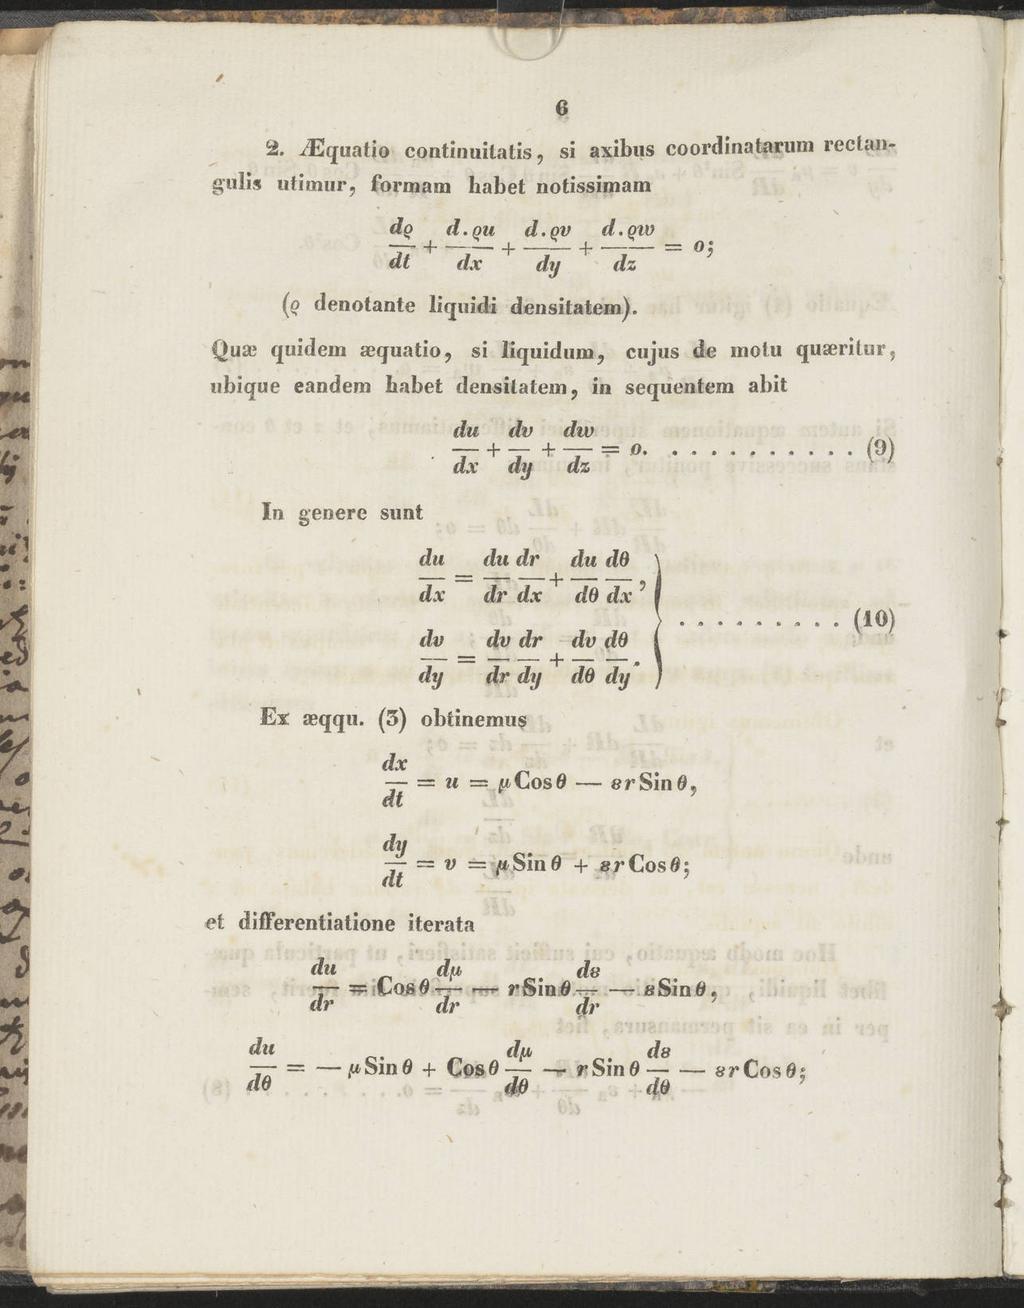 6
2. Æquatio continuitatis, si axibus coordinatarum rectan-
gulis utimur, formam habet notissimam
dϱ/dt + d.ϱu/dx + d.ϱv/dy + d.ϱw/dz = 0;
(ϱ denotante liquidi densitatem).
Quæ quidem æquatio, si liquidum, cujus de motu quæritur,
ubique eandem habet densitatem, in sequentem abit
du/dx + dv/dy + dw/dz = 0. . . . . . . . . . . (9)
In genere sunt
du/dx = du/dr dr/dx + du/dθ dθ/dx,
. . . . . . . . . (10)
dv/dy = dv/dr dr/dy + dv/dθ dθ/dy.
Ex æqqu. (3) obtinemus
dx/dt = u = μ Cos θ — εr Sin θ,
dy/dt = v = μ Sin θ + εr Cos θ;
et differentiatione iterata
du/dr = Cos θ dμ/dr — r Sin θ dε/dr — ε Sin θ,
du/dθ = — μ Sin θ + Cos θ dμ/dθ — r Sin θ dε/dθ — εr Cos θ;